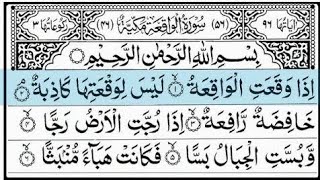 اٰیَاتُهَا ٩٦ (٥٦) سُوْرَةُ الْوَاقِعَةِ مَكِّيَّةٌ (٤٦) رُكُوْعَاتُهَا ٣
بِسْمِ اللّٰهِ الرَّحْمٰنِ الرَّحِيْمِ
اِذَا وَقَعَتِ الْوَاقِعَةُ ۝١ لَيْسَ لِوَقْعَتِهَا كَاذِبَةٌ ۝٢
خَافِضَةٌ رَّافِعَةٌ ۝٣ اِذَا رُجَّتِ الْاَرْضُ رَجًّا ۝٤
وَّبُسَّتِ الْجِبَالُ بَسًّا ۝٥ فَكَانَتْ هَبَآءً مُّنْۢبَثًّا ۝٦